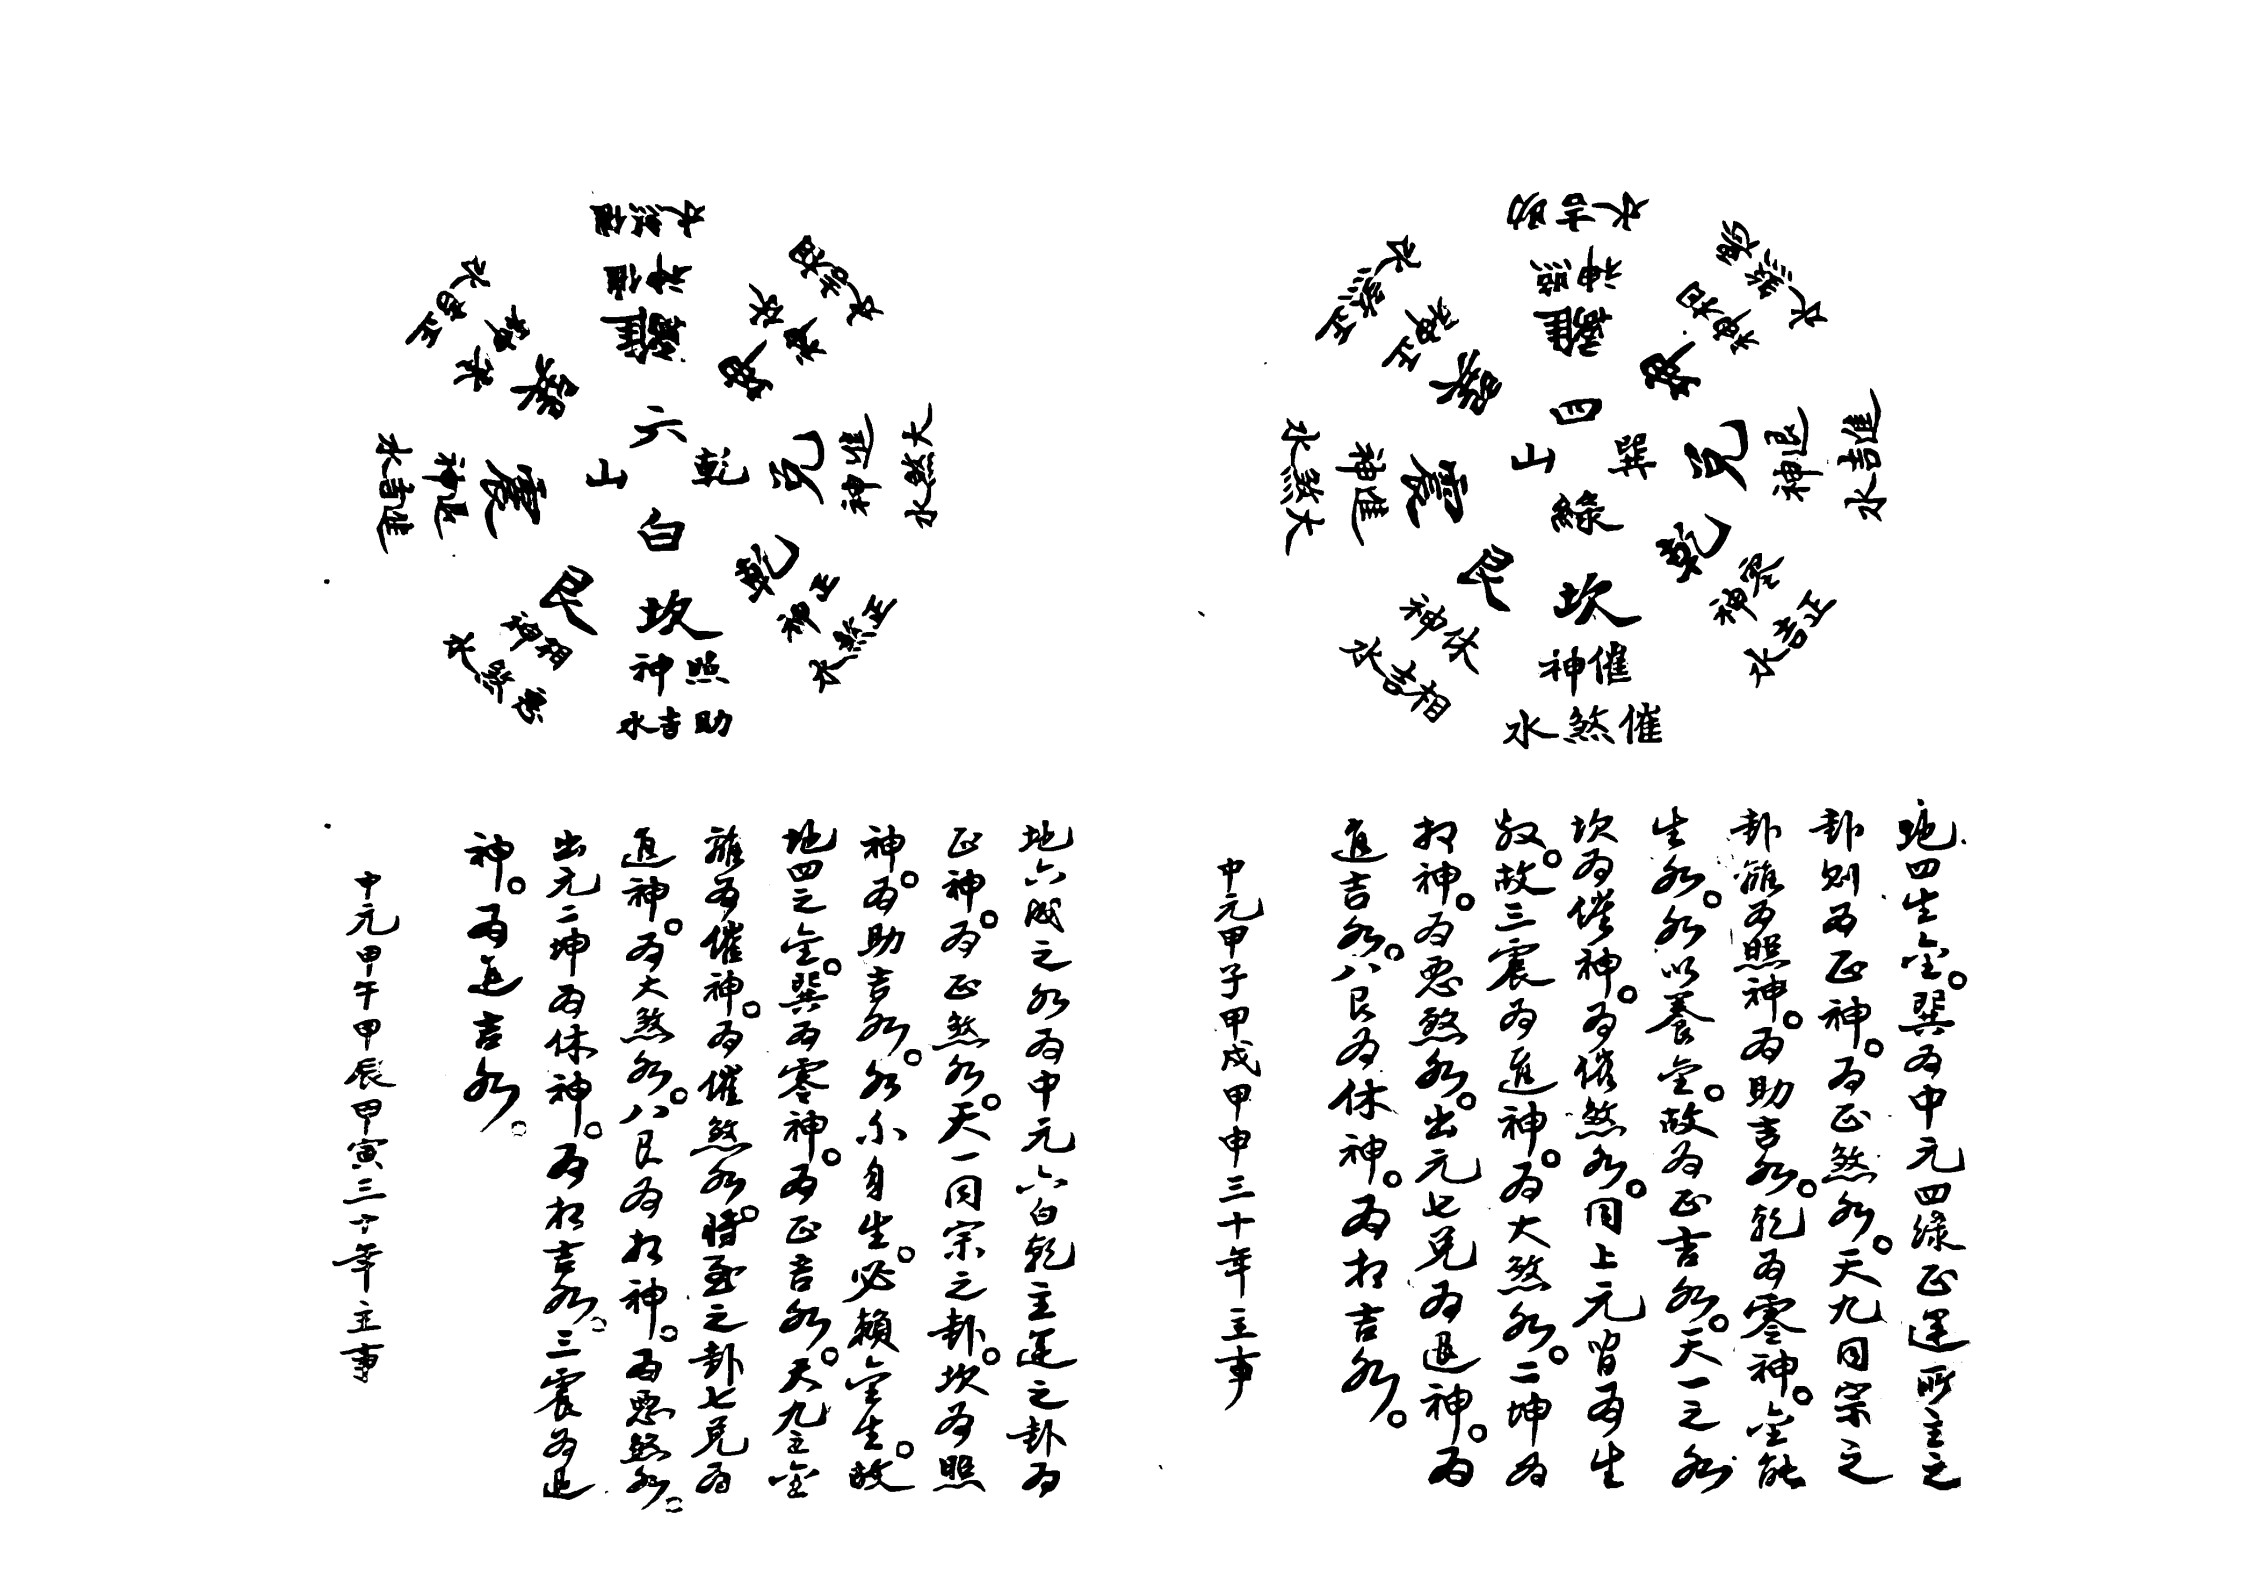 助吉水
照神
離
惡煞水
相神
坤
進吉水
退神
兌
正吉水
零神
乾
坎
催神
催煞水
艮
休神
相吉水
震
進神
大煞水
巽
正神
正煞水
四綠
巽山
地四生金。巽為中元四綠正運所主之
卦則為正神。為正煞水。天九同宗之
卦離為照神。為助吉水。乾為零神。金能
生水。水以養金。故為正吉水。天一之水
坎為催神。為催煞水。同上元皆為生
殺。故三震為進神。為大煞水。二坤為
相神。為惡煞水。出元七兌為退神。為
進吉水。八艮為休神。為相吉水。
中元甲子甲戌甲申三十年主事
催煞水
催神
離
相吉水
休神
坤
大煞水
進神
兌
正煞水
正神
乾
坎
照神
助吉水
艮
相神
惡煞水
震
退神
進吉水
巽
零神
正吉水
六白
乾山
地六成之水為中元六白乾主運之卦為
正神。為正煞水。天一同宗之卦。坎為照
神。為助吉水。水不自生。必賴金生。故
地四之金。巽為零神。為正吉水。天九之金
離為催神。為催煞水。將至之卦七兌為
進神。為大煞水。八艮為相神。為惡煞水。
出元二坤為休神。為相吉水。三震為退
神。為進吉水。
中元甲午甲辰甲寅三十年主事